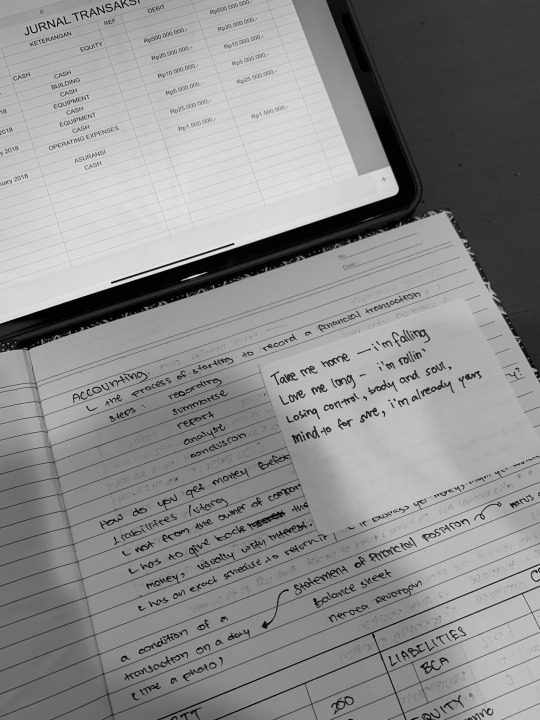 JURNAL TRANSAKSI
KETERANGAN REF DEBIT
EQUITY Rp500.000.000,-
CASH CASH Rp500.000.000,- Rp20.000.000,-
BUILDING Rp20.000.000,- Rp10.000.000,-
CASH
2018 EQUIPMENT Rp10.000.000,- Rp5.000.000,-
CASH
2018 EQUIPMENT Rp5.000.000,- Rp25.000.000,-
CASH
2018 OPERATING EXPENSES Rp25.000.000,-
ASURANSI Rp1.500.000,- Rp1.500.000,-
uary 2018 CASH
No.
Date
ACCOUNTING
the process of starting to record a financial transaction
steps : recording
summarise
report
analyse
conclusion
Take me home — i'm falling
Love me long – i'm rollin'
Losing control, body and soul,
mind to for sure, i'm already yours
How do you get money befor
Liabilities /
not from the owner of compan
has to give back the
money, usually with interest.
has an exact schedule to return it
statement of financial position
minus
a condition of a balance sheet
transaction on a day neraca keuangan
(like a photo)
LIABILITIES
BCA
250
EQUITY